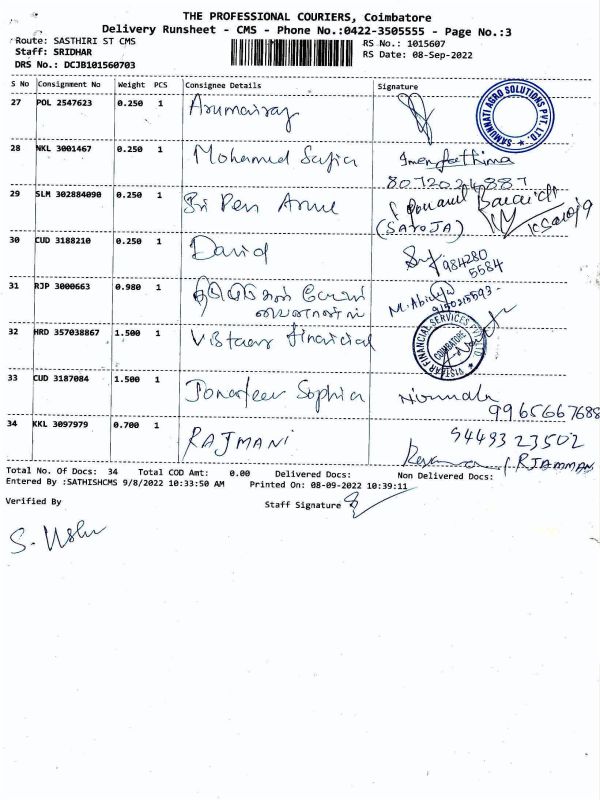 THE PROFESSIONAL COURIERS, Coimbatore
Delivery Runsheet - CMS - Phone No.:0422-3505555 - Page No.:3
Route: SASTHIRI ST CMS
Staff: SRIDHAR
DRS No.: DCJB101560703
RS No.: 1015607
RS Date: 08-Sep-2022
S No Consignment No Weight PCS Consignee Details Signature
27 POL 2547623 0.250 1 Arumairaj
SAMUNNATI AGRO SOLUTIONS PVT. LTD.
28 NKL 3001467 0.250 1 Mohamed Safia
8072024887
29 SLM 302884090 0.250 1 Sri Den
(SAROJA)
30 CUD 3188210 0.250 1 David
984280
5584
31 RJP 3000663 0.980 1
9150215593
32 HRD 357038867 1.500 1 Vistaar financial
VISTAAR FINANCIAL SERVICES PVT LTD
COIMBATORE
33 CUD 3187084 1.500 1 Sophia
Nirmala
9965667688
34 KKL 3097979 0.700 1 RAJMANI
9449323502
Total No. Of Docs: 34 Total COD Amt: 0.00 Delivered Docs: Non Delivered Docs:
Entered By :SATHISHCMS 9/8/2022 10:33:50 AM Printed On: 08-09-2022 10:39:11
Verified By
Staff Signature
S. Usha